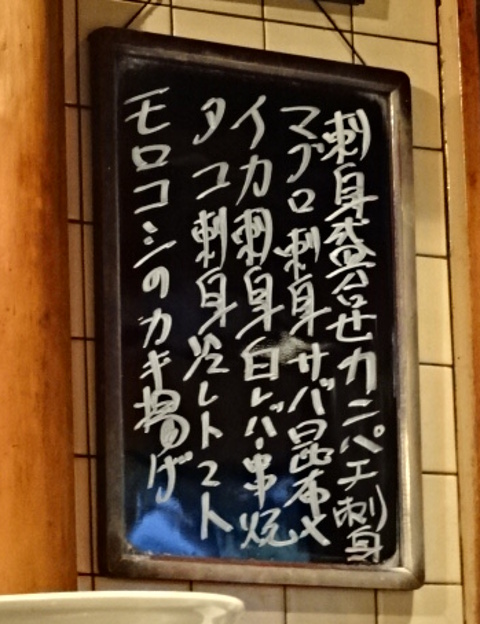 刺身盛合せカンパチ刺身
マグロ刺身サバ昆布〆
イカ刺身白レバー串焼
タコ刺身冷しトマト
モロコシのカキ揚げ